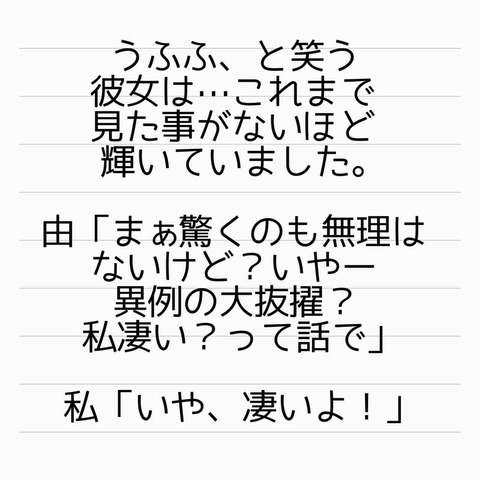 うふふ、と笑う
彼女は…これまで
見た事がないほど
輝いていました。
由「まぁ驚くのも無理は
ないけど？いやー
異例の大抜擢？
私凄い？って話で」
私「いや、凄いよ！」